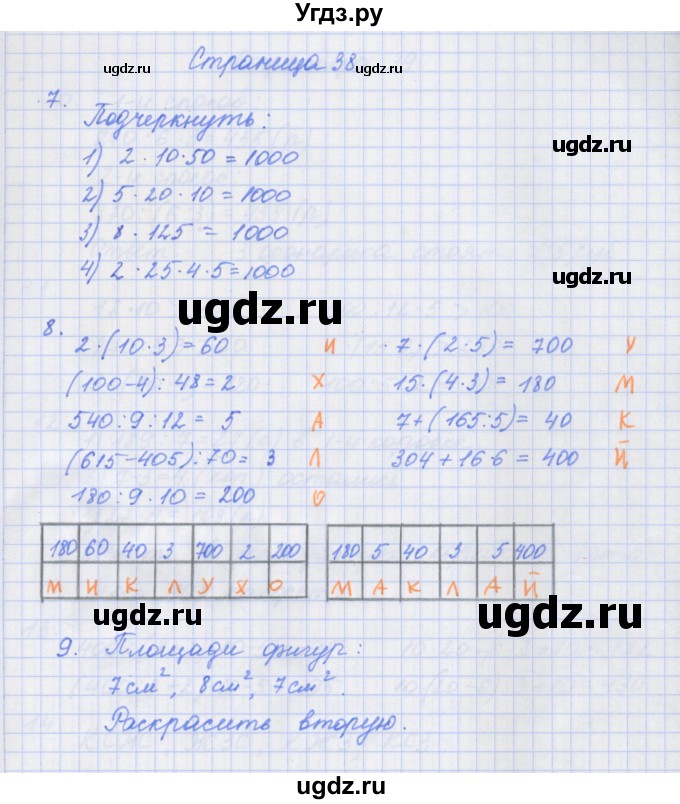 Угдз.ру
Страница 38
ugdz.ru
ugdz.ru
7.
Подчеркнуть:
1) 2 · 10 · 50 = 1000
ugdz.ru
2) 5 · 20 · 10 = 1000
ugdz.ru
3) 8 · 125 = 1000
4) 2 · 25 · 4 · 5 = 1000
ugdz.ru
8.
2 · (10 · 3) = 60 И 7 · (2 · 5) = 700 У
(100 - 4) : 48 = 2 Х 15 · (4 · 3) = 180 М
540 : 9 : 12 = 5 А 7 + (165 : 5) = 40 К
ugdz.ru
(615 - 405) : 70 = 3 Л 304 + 16 · 6 = 400 Й
180 : 9 · 10 = 200 О
ugdz.ru
180 60 40 3 700 2 200 180 5 40 3 5 400
М И К Л У Х О М А К Л А Й
ugdz.ru
ugdz.ru
9. Площади фигур:
7 см², 8 см², 7 см².
ugdz.ru
Раскрасить вторую.
ugdz.ru
ugdz.ru